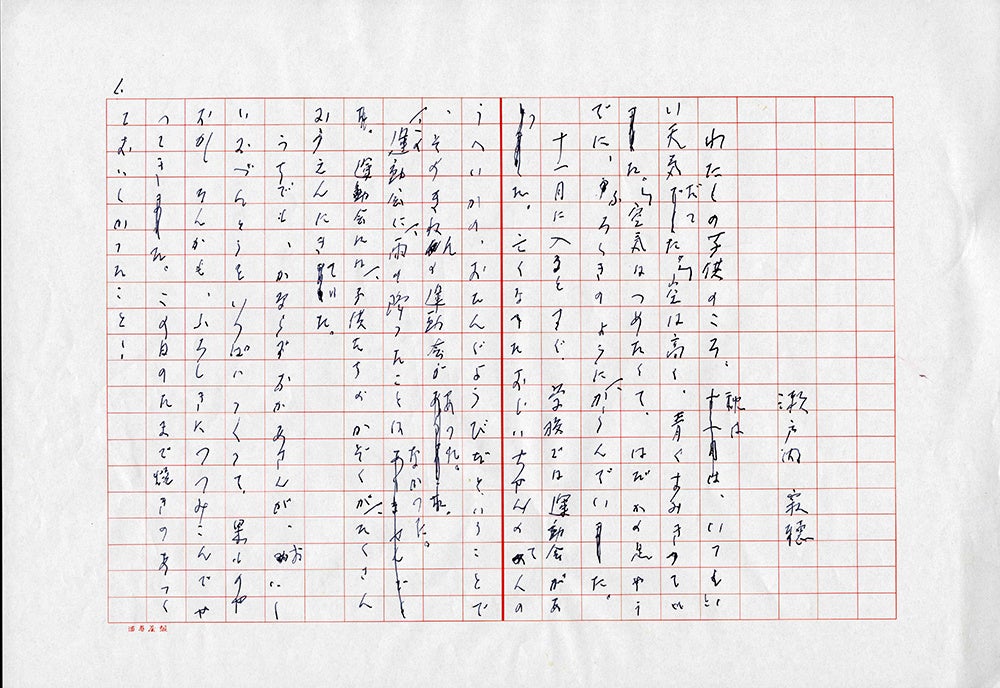 瀬戸内 寂聴
わたしの子供のころ、秋は、いつもい
い天気だった。空は高く、青くすみきってい
た。空気はつめたくて、はだかの足やう
でに、ふろしきのようにからんでいた。
十一月に入るとすぐ、学校では運動会があ
った。亡くなったおじいちゃんのてんの
うへいかの、おたんじょうびだということで
、そのための運動会があった。
運動会に雨の降ったことはなかった。
運動会には子供たちのかぞくがたくさん
おうえんにきていた。
うちでも、かならずおかあさんが、おいし
いおべんとうをいっぱいつくって、果ものや
おかしなんかも、ふろしきにつつみこんでや
ってきた。この日のたまご焼きのあつく
ておいしかったこと！
1.